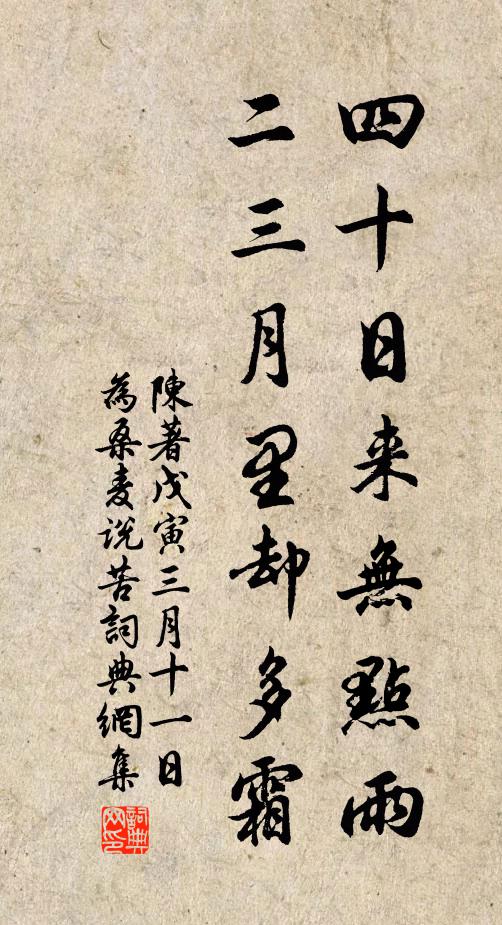 四十日来無點雨
二三月里却多霜
陳著戊寅三月十一日
為桑麦説苦詞典網集
詞典
网印